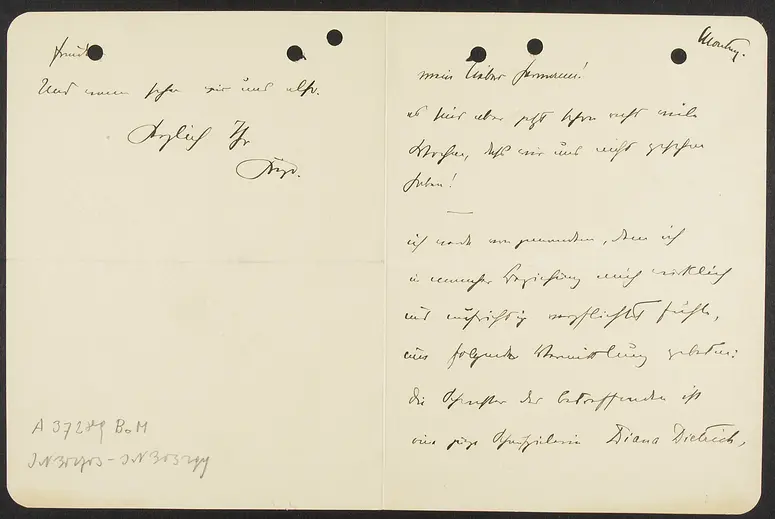 Montag.
mein lieber Hermann!
es sind aber jetzt schon recht viele
Wochen, daß wir uns nicht gesehen
haben!
ich werde von jemandem, dem ich
in mancher Beziehung mich wirklich
und aufrichtig verpflichtet fühle,
um folgende Vermittlung gebeten:
die Schwester der betreffenden ist
eine junge Schauspielerin Diana Dietrich,
Und wann sehn wir uns also.
Herzlich Ihr
A 37289 BaM